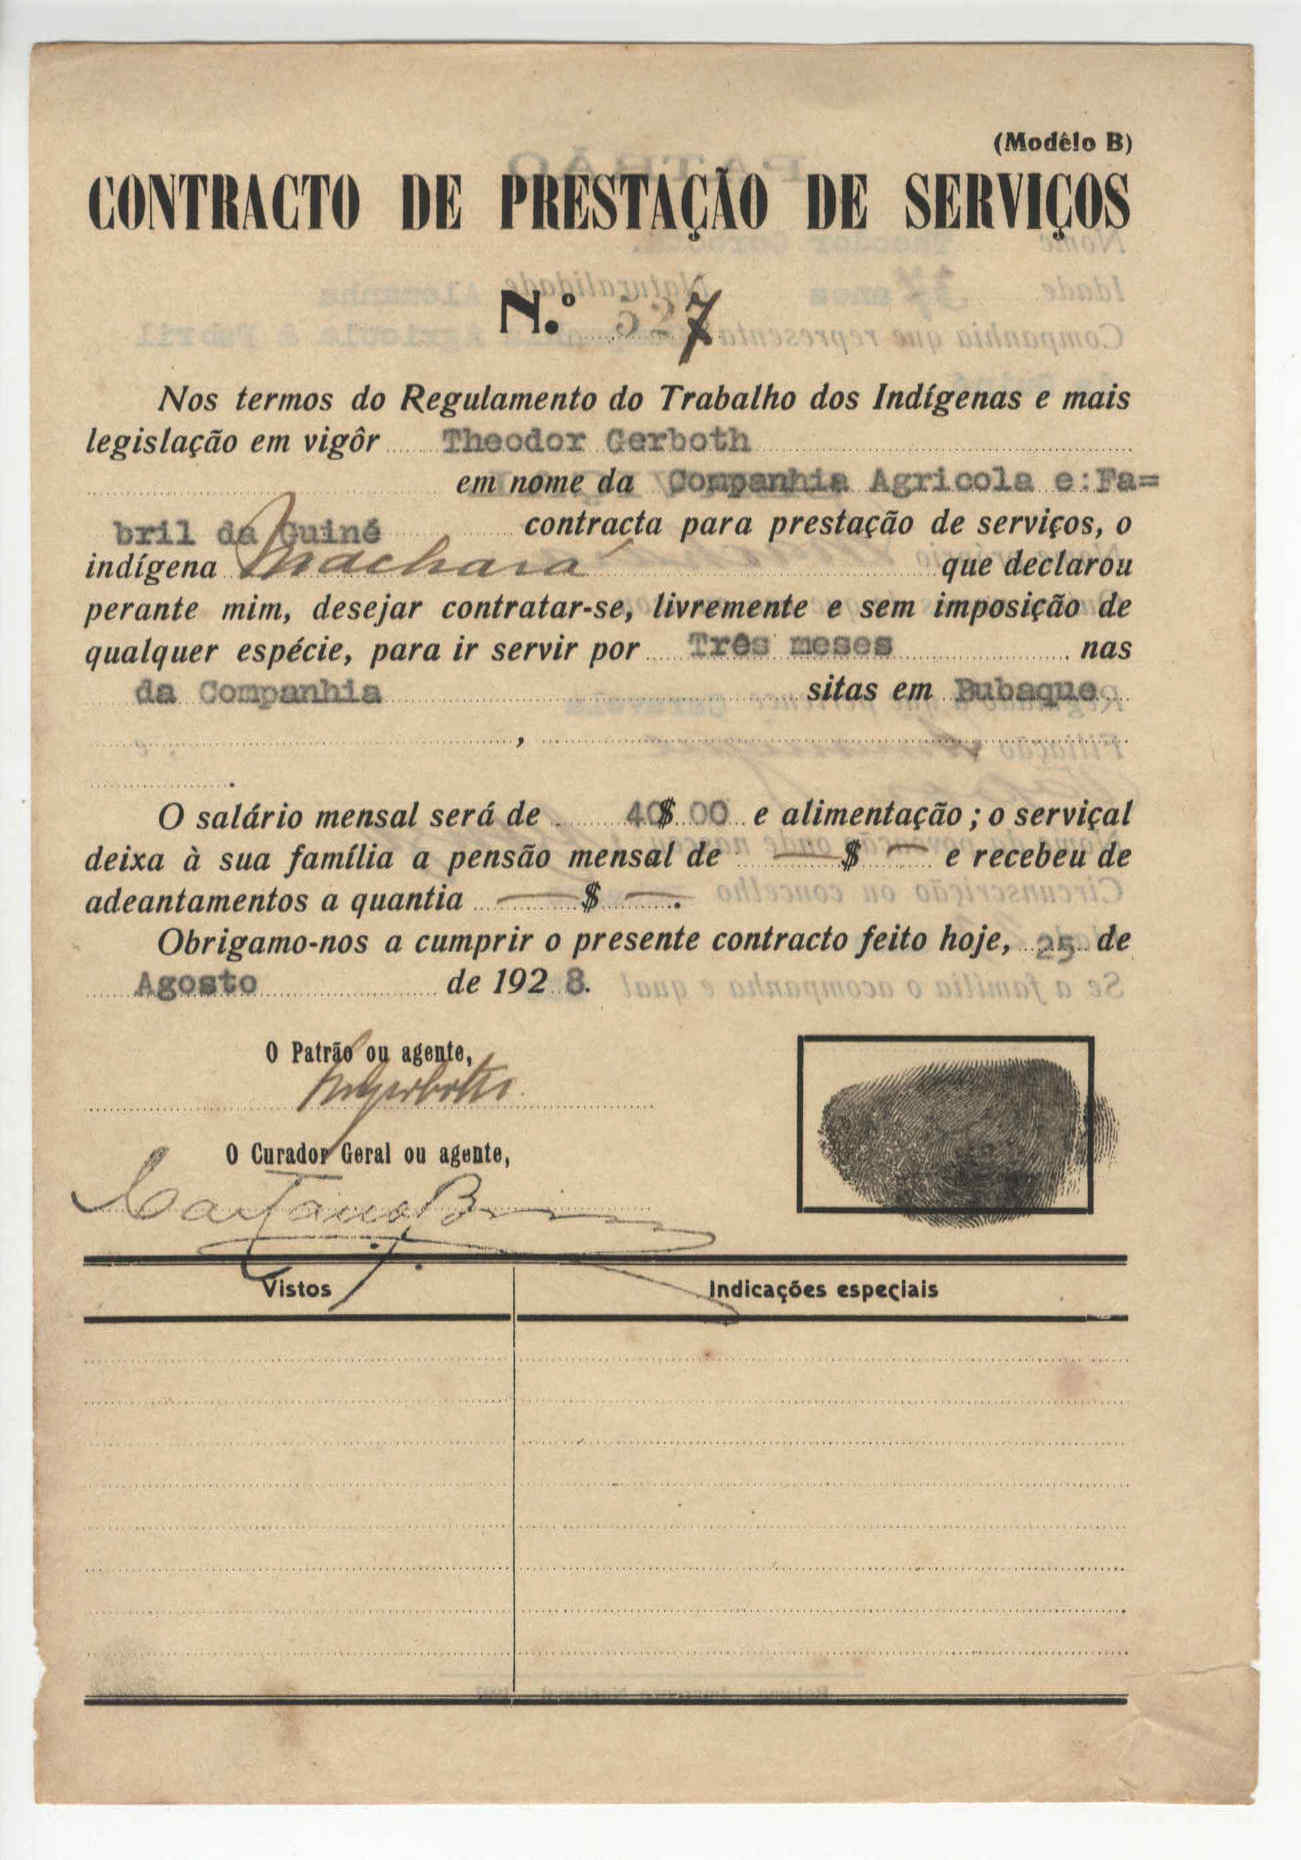 (Modêlo B)
CONTRACTO DE PRESTAÇÃO DE SERVIÇOS
N.º 527
Nos termos do Regulamento do Trabalho dos Indígenas e mais
legislação em vigôr Theodor Gerboth
em nome da Companhia Agricola e:Fa=
bril da Guiné contracta para prestação de serviços, o
indígena Machará que declarou
perante mim, desejar contratar-se, livremente e sem imposição de
qualquer espécie, para ir servir por Três meses nas
da Companhia sitas em Bubaque
,
.
O salário mensal será de 40$00 e alimentação ; o serviçal
deixa à sua família a pensão mensal de —$— e recebeu de
adeantamentos a quantia —$—.
Obrigamo-nos a cumprir o presente contracto feito hoje, 25 de
Agosto de 1928.
O Patrão ou agente,
O Curador Geral ou agente,
Vistos Indicações especiais